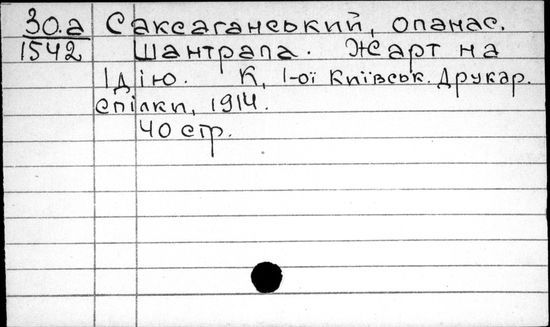 30.а Саксаганський, Опанас.
1542 Шантрапа. Жарт на
1 дію. К, 1-ої Київськ. Друкар.
спілки, 1914.
40 стр.